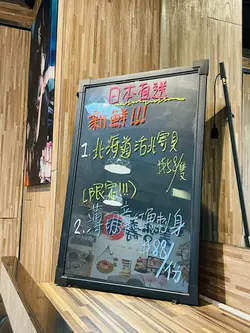 日本直送
新鮮!!!
1. 北海道活北寄貝
$58/隻
(限定!!!)
2. 薄切
刺身
$88/份